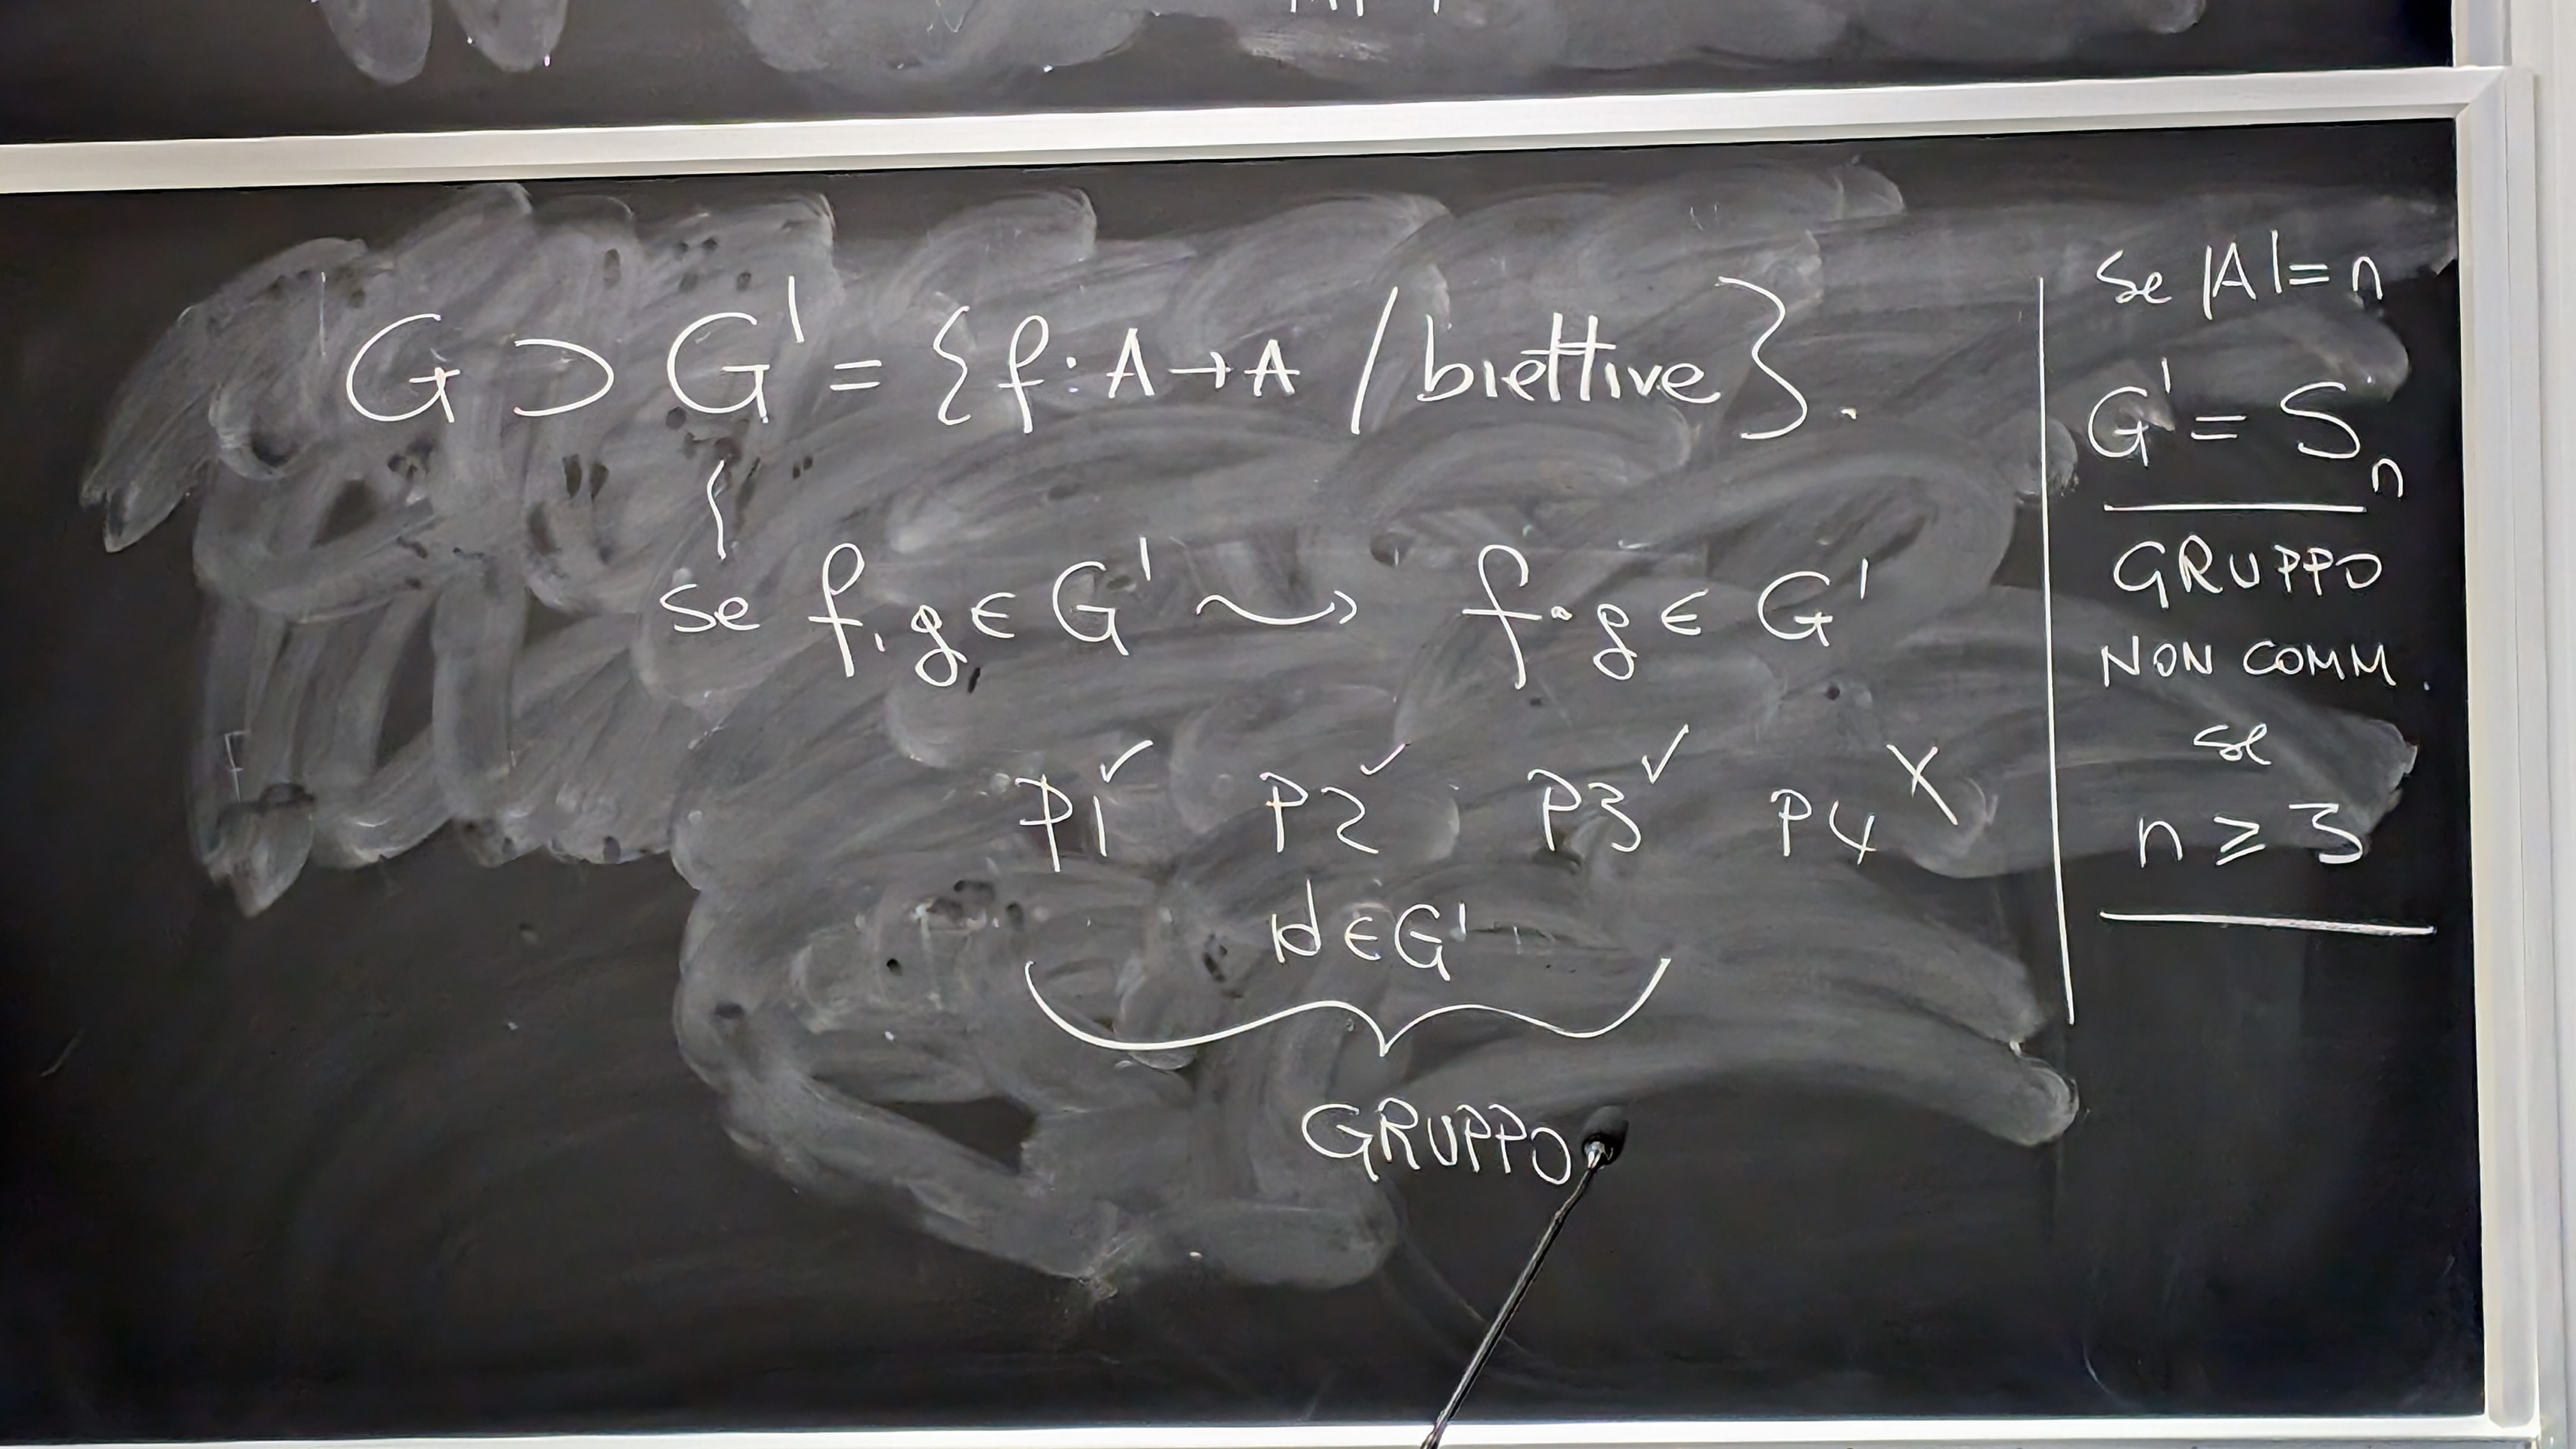 G ⊃ G' = {f: A → A / biettive}.
se f, g ∈ G' ⤳ f∘g ∈ G'
P1 ✓ P2 ✓ P3 ✓ P4 X
id ∈ G'
GRUPPO
se |A| = n
G' = Sₙ
GRUPPO
NON COMM.
se
n ≥ 3